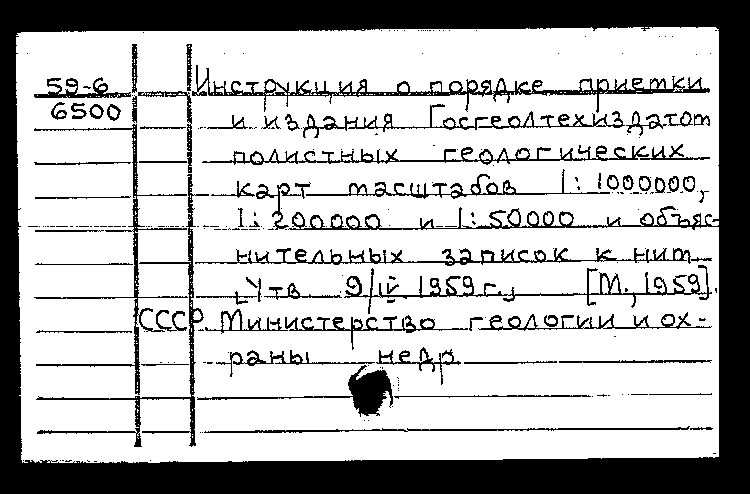 59-6 Инструкция о порядке приемки
6500 и издания Госгеолтехиздатом
полистных геологических
карт масштабов 1:1000000,
1:200000 и 1:50000 и объяс-
нительных записок к ним
[Утв 9/IV 1959г.] [М., 1959].
СССР. Министерство геологии и ох-
раны недр